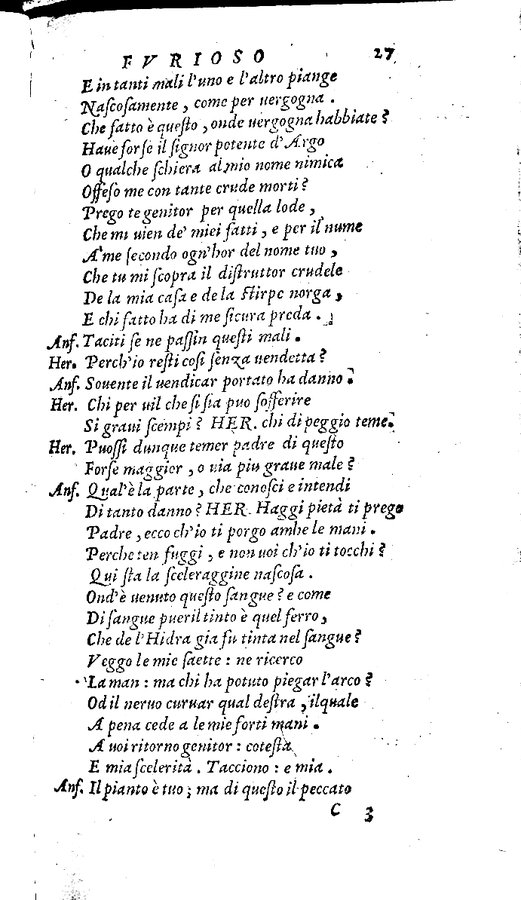 FVRIOSO 27
E in tanti mali l'uno e l'altro piange
Naſcoſamente, come per uergogna.
Che fatto è queſto, onde uergogna habbiate?
Haue forſe il ſignor potente d'Argo
O qualche ſchiera al mio nome nimica
Offeſo me con tante crude morti?
Prego te genitor per quella lode,
Che mi uien de' miei fatti, e per il nume
A' me ſecondo ogn'hor del nome tuo,
Che tu mi ſcopra il diſtruttor crudele
De la mia caſa e de la ſtirpe norga,
E chi fatto ha di me ſicura preda.
Anf. Taciti ſe ne paſſin queſti mali.
Her. Perch'io reſti coſi ſenza uendetta?
Anf. Souente il uendicar portato ha danno.
Her. Chi per uil che ſi ſia puo ſofferire
Si graui ſcempi? HER. chi di peggio teme.
Her. Puoſſi dunque temer padre di queſto
Forſe maggior, o uia piu graue male?
Anf. Qual'è la parte, che conoſci e intendi
Di tanto danno? HER. Haggi pietà ti prego
Padre, ecco ch'io ti porgo ambe le mani.
Perche ten fuggi, e non uoi ch'io ti tocchi?
Qui ſta la ſceleraggine naſcoſa.
Ond'è uenuto queſto ſangue? e come
Di ſangue pueril tinto è quel ferro,
Che de l'Hidra gia fu tinta nel ſangue?
Veggo le mie ſaette: ne ricerco
La man: ma chi ha potuto piegar l'arco?
Od il neruo curuar qual deſtra, ilquale
A pena cede a le mie forti mani.
A uoi ritorno genitor: coteſta
E mia ſcelerità. Tacciono: e mia.
Anf. Il pianto è tuo; ma di queſto il peccato
C 3